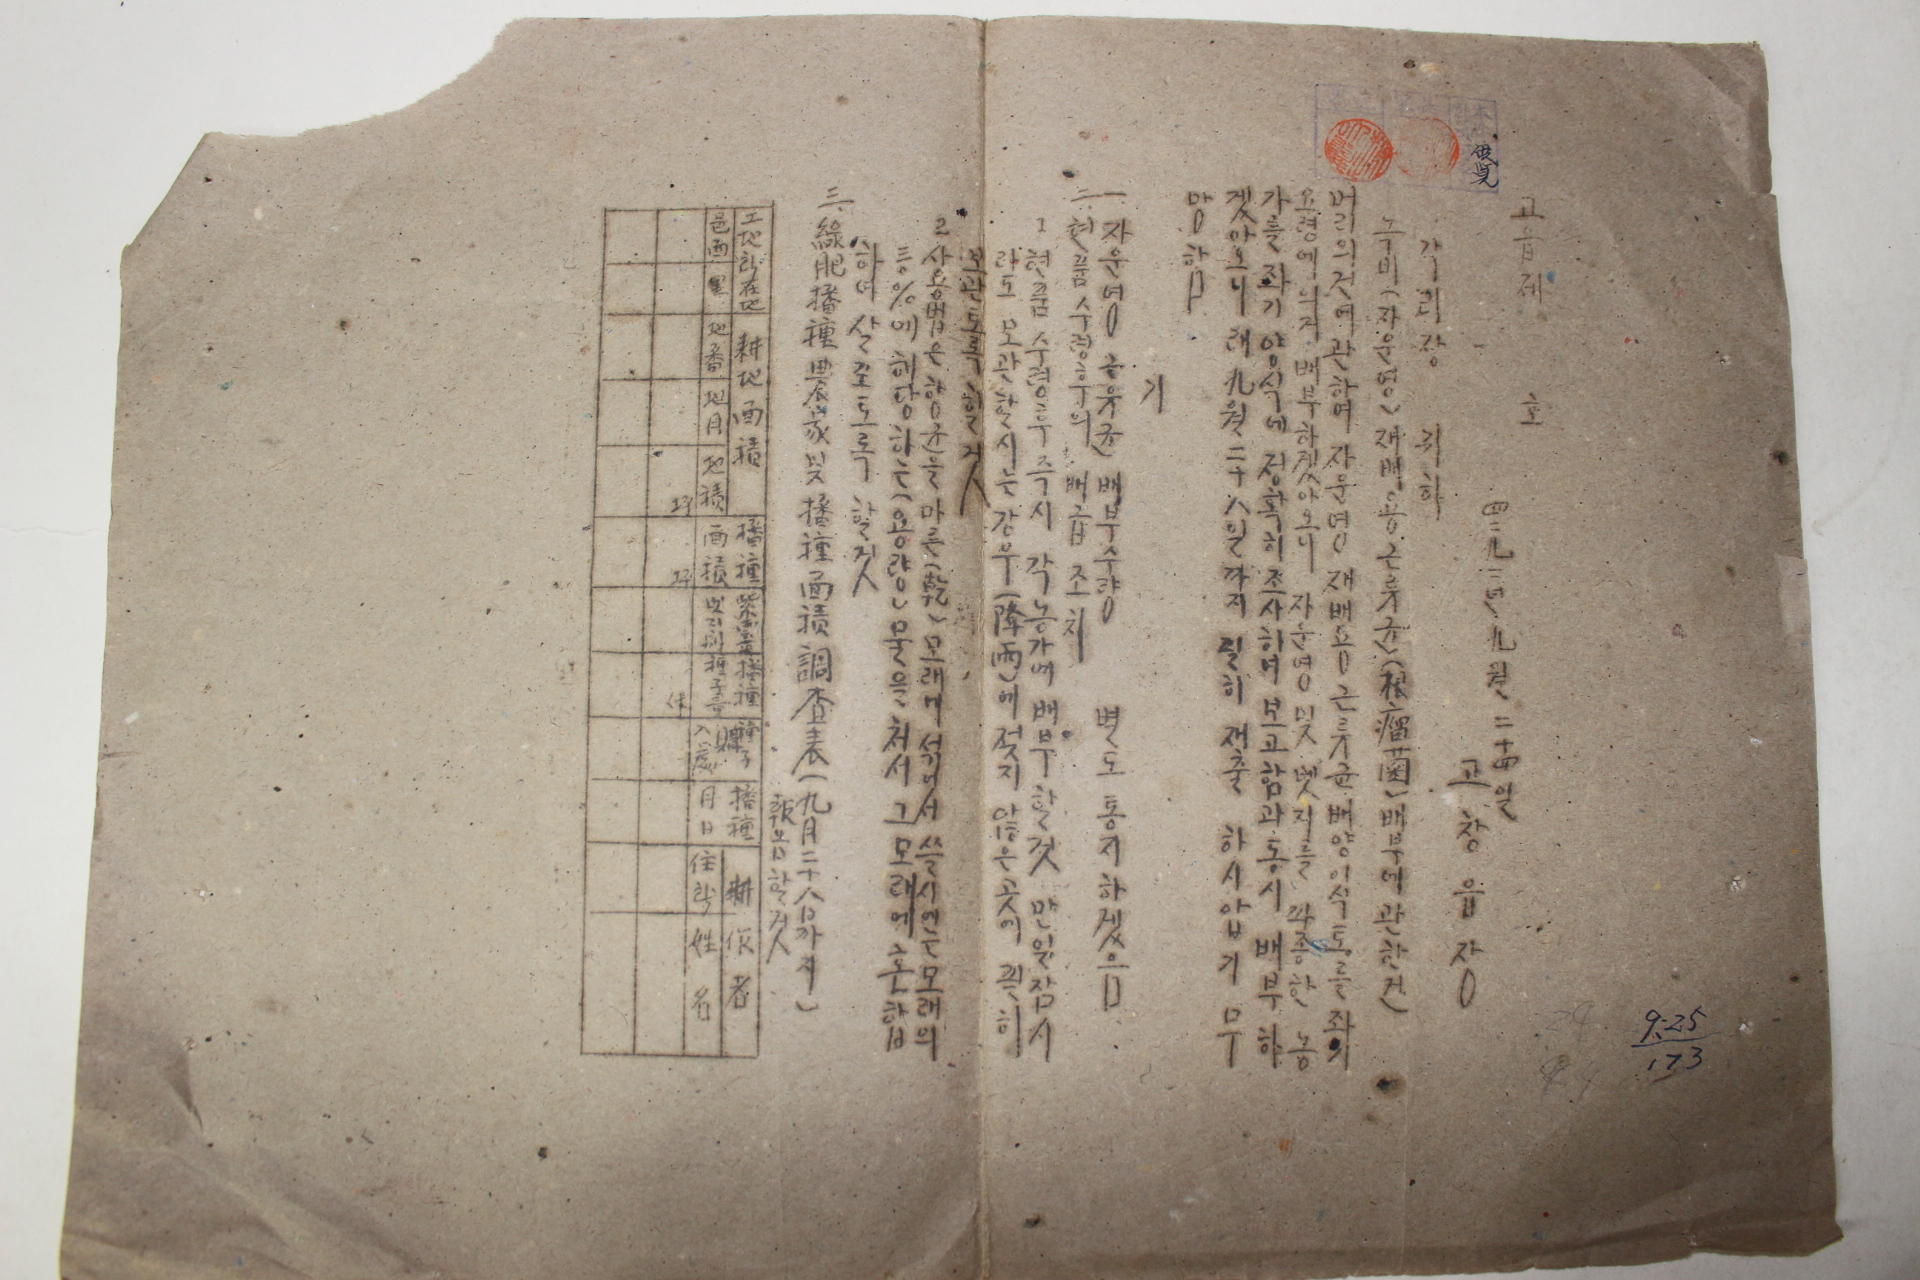 供覽
9.25
173
고읍제 호
四二九二년 九월 二十四일
고창읍장
각리장 귀하
녹비(자운영) 재배용 근류균(根瘤菌) 배부에 관한 건
머리의 건에 관하여 자운영 재배용 근류균 배양이식토를 좌의
요령에 의거 배부하겠아오니 자운영 및 벳지를 파종한 농
가를 좌기 양식에 정확히 조사하여 보고함과 동시 배부하
겠아오니 래 九월 二十八일까지 필히 재출 하시압기 무
망하나이다
기
一. 자운영 근류균 배부수량 별도 통지하겠음
二. 현품수령후의 배급 조치
1 현품 수령후 즉시 각 농가에 배부할것 만일 잠시
라도 보관할시는 강우(降雨)에 젖지 않은 곳에 필히
보관토록 할것
2 사용법은 함균을 마른(乾) 모래에 섞어서 쓸시에는 모래의
등%에 해당하는(용량) 물을 처서 그 모래에 혼합
하여 살포토록 할것
三. 綠肥播種農家 및 播種面積調査表 (九月二十八日까지)
報告할것
工地所在地 耕地面積 播種 紫雲英播種 種子購 播種 耕作者
邑面 里 地番 地目 地積 面積 및 벳지種子量 入處 月日 住所 姓名
坪 坪